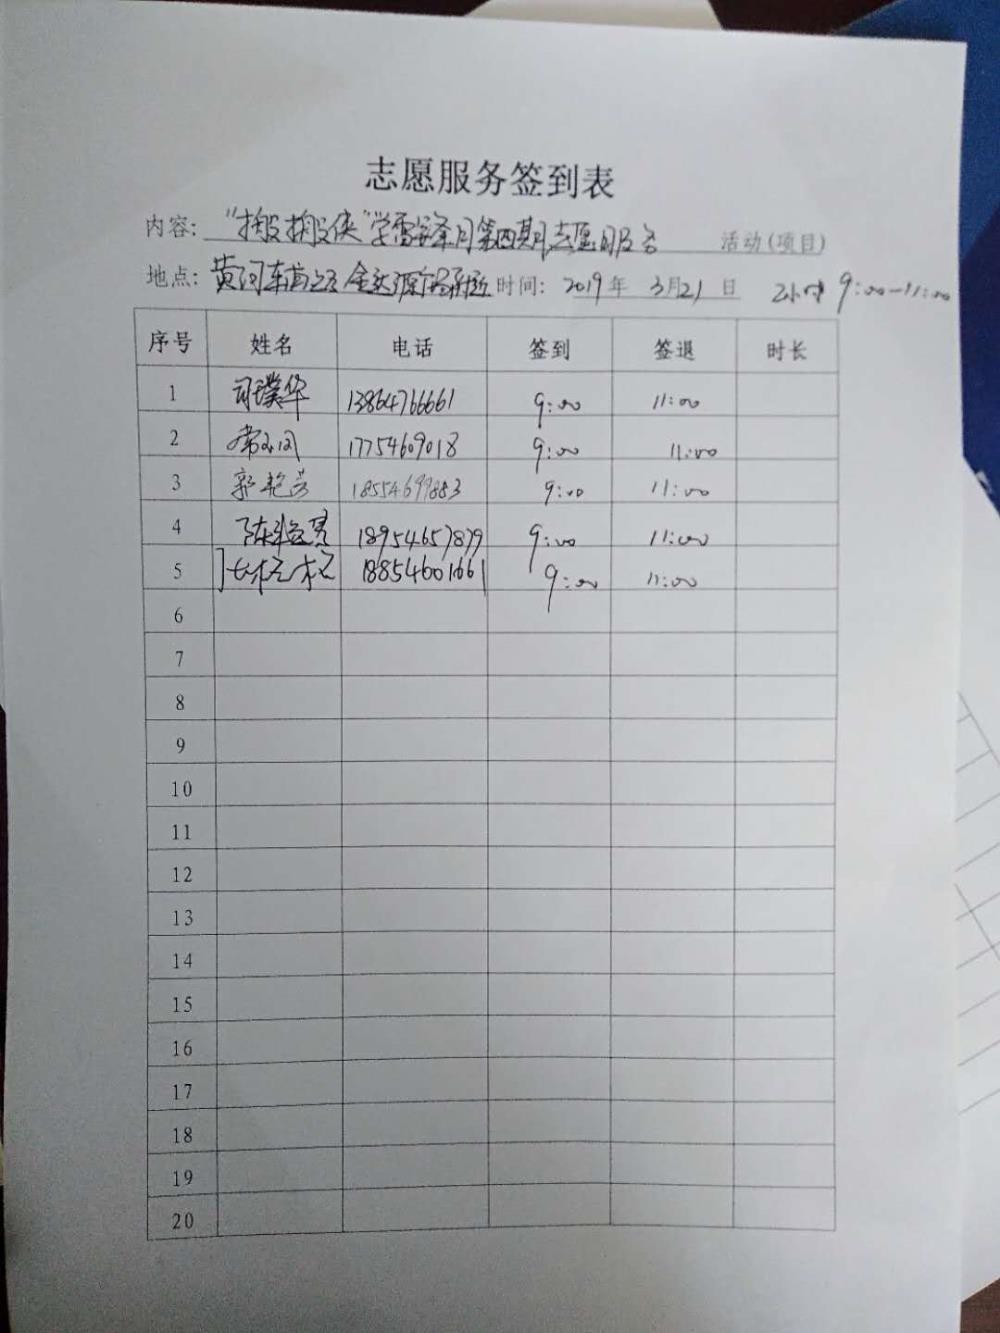 志愿服务签到表
内容: "搬搬侠"学雷锋月第四期志愿服务 活动(项目)
地点: 黄河东 金达源 时间: 2019年 3月21日 2小时 9:00-11:00
序号 姓名 电话 签到 签退 时长
1 司璞华 13864766661 9:00 11:00
2 17754609018 9:00 11:00
3 郭艳芳 18554699883 9:00 11:00
4 陈 18954657879 9:00 11:00
5 18854601661 9:00 11:00
6
7
8
9
10
11
12
13
14
15
16
17
18
19
20